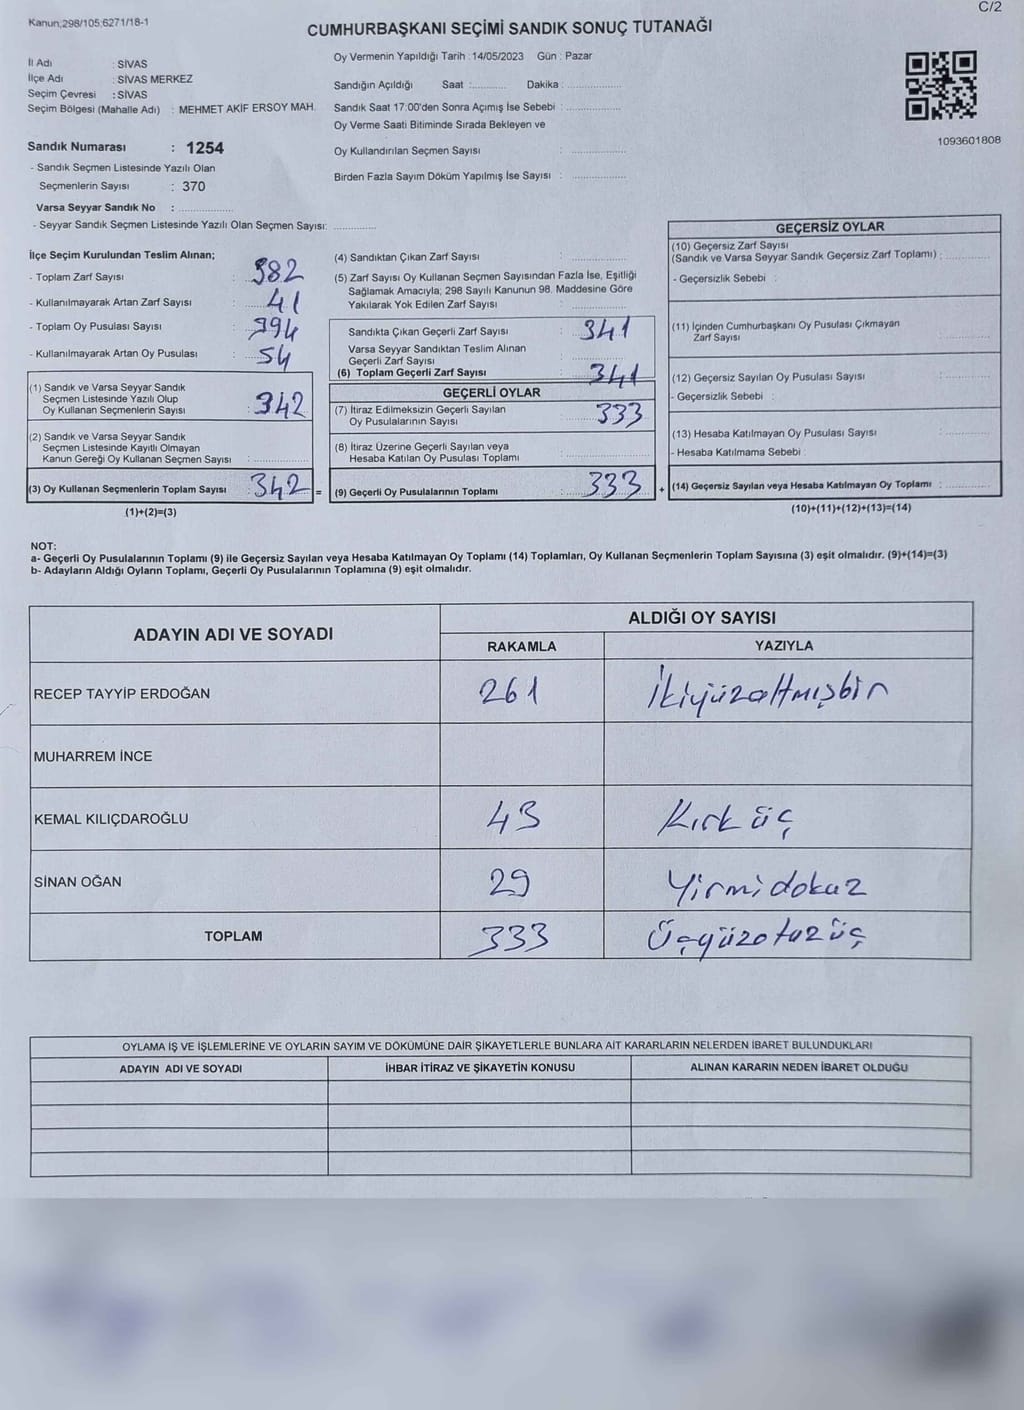 C/2
Kanun;298/105;6271/18-1
CUMHURBAŞKANI SEÇİMİ SANDIK SONUÇ TUTANAĞI
İl Adı : SİVAS
İlçe Adı : SİVAS MERKEZ
Seçim Çevresi : SİVAS
Seçim Bölgesi (Mahalle Adı) : MEHMET AKİF ERSOY MAH.
Sandık Numarası : 1254
- Sandık Seçmen Listesinde Yazılı Olan
Seçmenlerin Sayısı : 370
Varsa Seyyar Sandık No : ..................
- Seyyar Sandık Seçmen Listesinde Yazılı Olan Seçmen Sayısı: ..............
Oy Vermenin Yapıldığı Tarih : 14/05/2023 Gün : Pazar
Sandığın Açıldığı Saat :............ Dakika : ..................
Sandık Saat 17:00'den Sonra Açımış İse Sebebi : ..................
Oy Verme Saati Bitiminde Sırada Bekleyen ve
Oy Kullandırılan Seçmen Sayısı : ..................
Birden Fazla Sayım Döküm Yapılmış İse Sayısı : ..................
1093601808
İlçe Seçim Kurulundan Teslim Alınan;
- Toplam Zarf Sayısı : 382
- Kullanılmayarak Artan Zarf Sayısı : 41
- Toplam Oy Pusulası Sayısı : 394
- Kullanılmayarak Artan Oy Pusulası : 54
(1) Sandık ve Varsa Seyyar Sandık
Seçmen Listesinde Yazılı Olup
Oy Kullanan Seçmenlerin Sayısı : 342
(2) Sandık ve Varsa Seyyar Sandık
Seçmen Listesinde Kayıtlı Olmayan
Kanun Gereği Oy Kullanan Seçmen Sayısı : ..................
(3) Oy Kullanan Seçmenlerin Toplam Sayısı : 342 =
(1)+(2)=(3)
(4) Sandıktan Çıkan Zarf Sayısı : ..................
(5) Zarf Sayısı Oy Kullanan Seçmen Sayısından Fazla İse, Eşitliği
Sağlamak Amacıyla; 298 Sayılı Kanunun 98. Maddesine Göre
Yakılarak Yok Edilen Zarf Sayısı : ..................
Sandıkta Çıkan Geçerli Zarf Sayısı : 341
Varsa Seyyar Sandıktan Teslim Alınan
Geçerli Zarf Sayısı : ..................
(6) Toplam Geçerli Zarf Sayısı : 341
GEÇERLİ OYLAR
(7) İtiraz Edilmeksizin Geçerli Sayılan
Oy Pusulalarının Sayısı : 333
(8) İtiraz Üzerine Geçerli Sayılan veya
Hesaba Katılan Oy Pusulası Toplamı : ..................
(9) Geçerli Oy Pusulalarının Toplamı : 333 +
GEÇERSİZ OYLAR
(10) Geçersiz Zarf Sayısı
(Sandık ve Varsa Seyyar Sandık Geçersiz Zarf Toplamı) : ..............
- Geçersizlik Sebebi :
(11) İçinden Cumhurbaşkanı Oy Pusulası Çıkmayan
Zarf Sayısı : ..............
(12) Geçersiz Sayılan Oy Pusulası Sayısı : ..............
- Geçersizlik Sebebi :
(13) Hesaba Katılmayan Oy Pusulası Sayısı : ..............
- Hesaba Katılmama Sebebi :
(14) Geçersiz Sayılan veya Hesaba Katılmayan Oy Toplamı : ..............
(10)+(11)+(12)+(13)=(14)
NOT:
a- Geçerli Oy Pusulalarının Toplamı (9) ile Geçersiz Sayılan veya Hesaba Katılmayan Oy Toplamı (14) Toplamları, Oy Kullanan Seçmenlerin Toplam Sayısına (3) eşit olmalıdır. (9)+(14)=(3)
b- Adayların Aldığı Oyların Toplamı, Geçerli Oy Pusulalarının Toplamına (9) eşit olmalıdır.
ADAYIN ADI VE SOYADI ALDIĞI OY SAYISI
RAKAMLA YAZIYLA
RECEP TAYYİP ERDOĞAN 261 İkiyüzaltmışbir
MUHARREM İNCE
KEMAL KILIÇDAROĞLU 43 Kırk üç
SİNAN OĞAN 29 Yirmi dokuz
TOPLAM 333 Üçyüzotuzüç
OYLAMA İŞ VE İŞLEMLERİNE VE OYLARIN SAYIM VE DÖKÜMÜNE DAİR ŞİKAYETLERLE BUNLARA AİT KARARLARIN NELERDEN İBARET BULUNDUKLARI
ADAYIN ADI VE SOYADI İHBAR İTİRAZ VE ŞİKAYETİN KONUSU ALINAN KARARIN NEDEN İBARET OLDUĞU